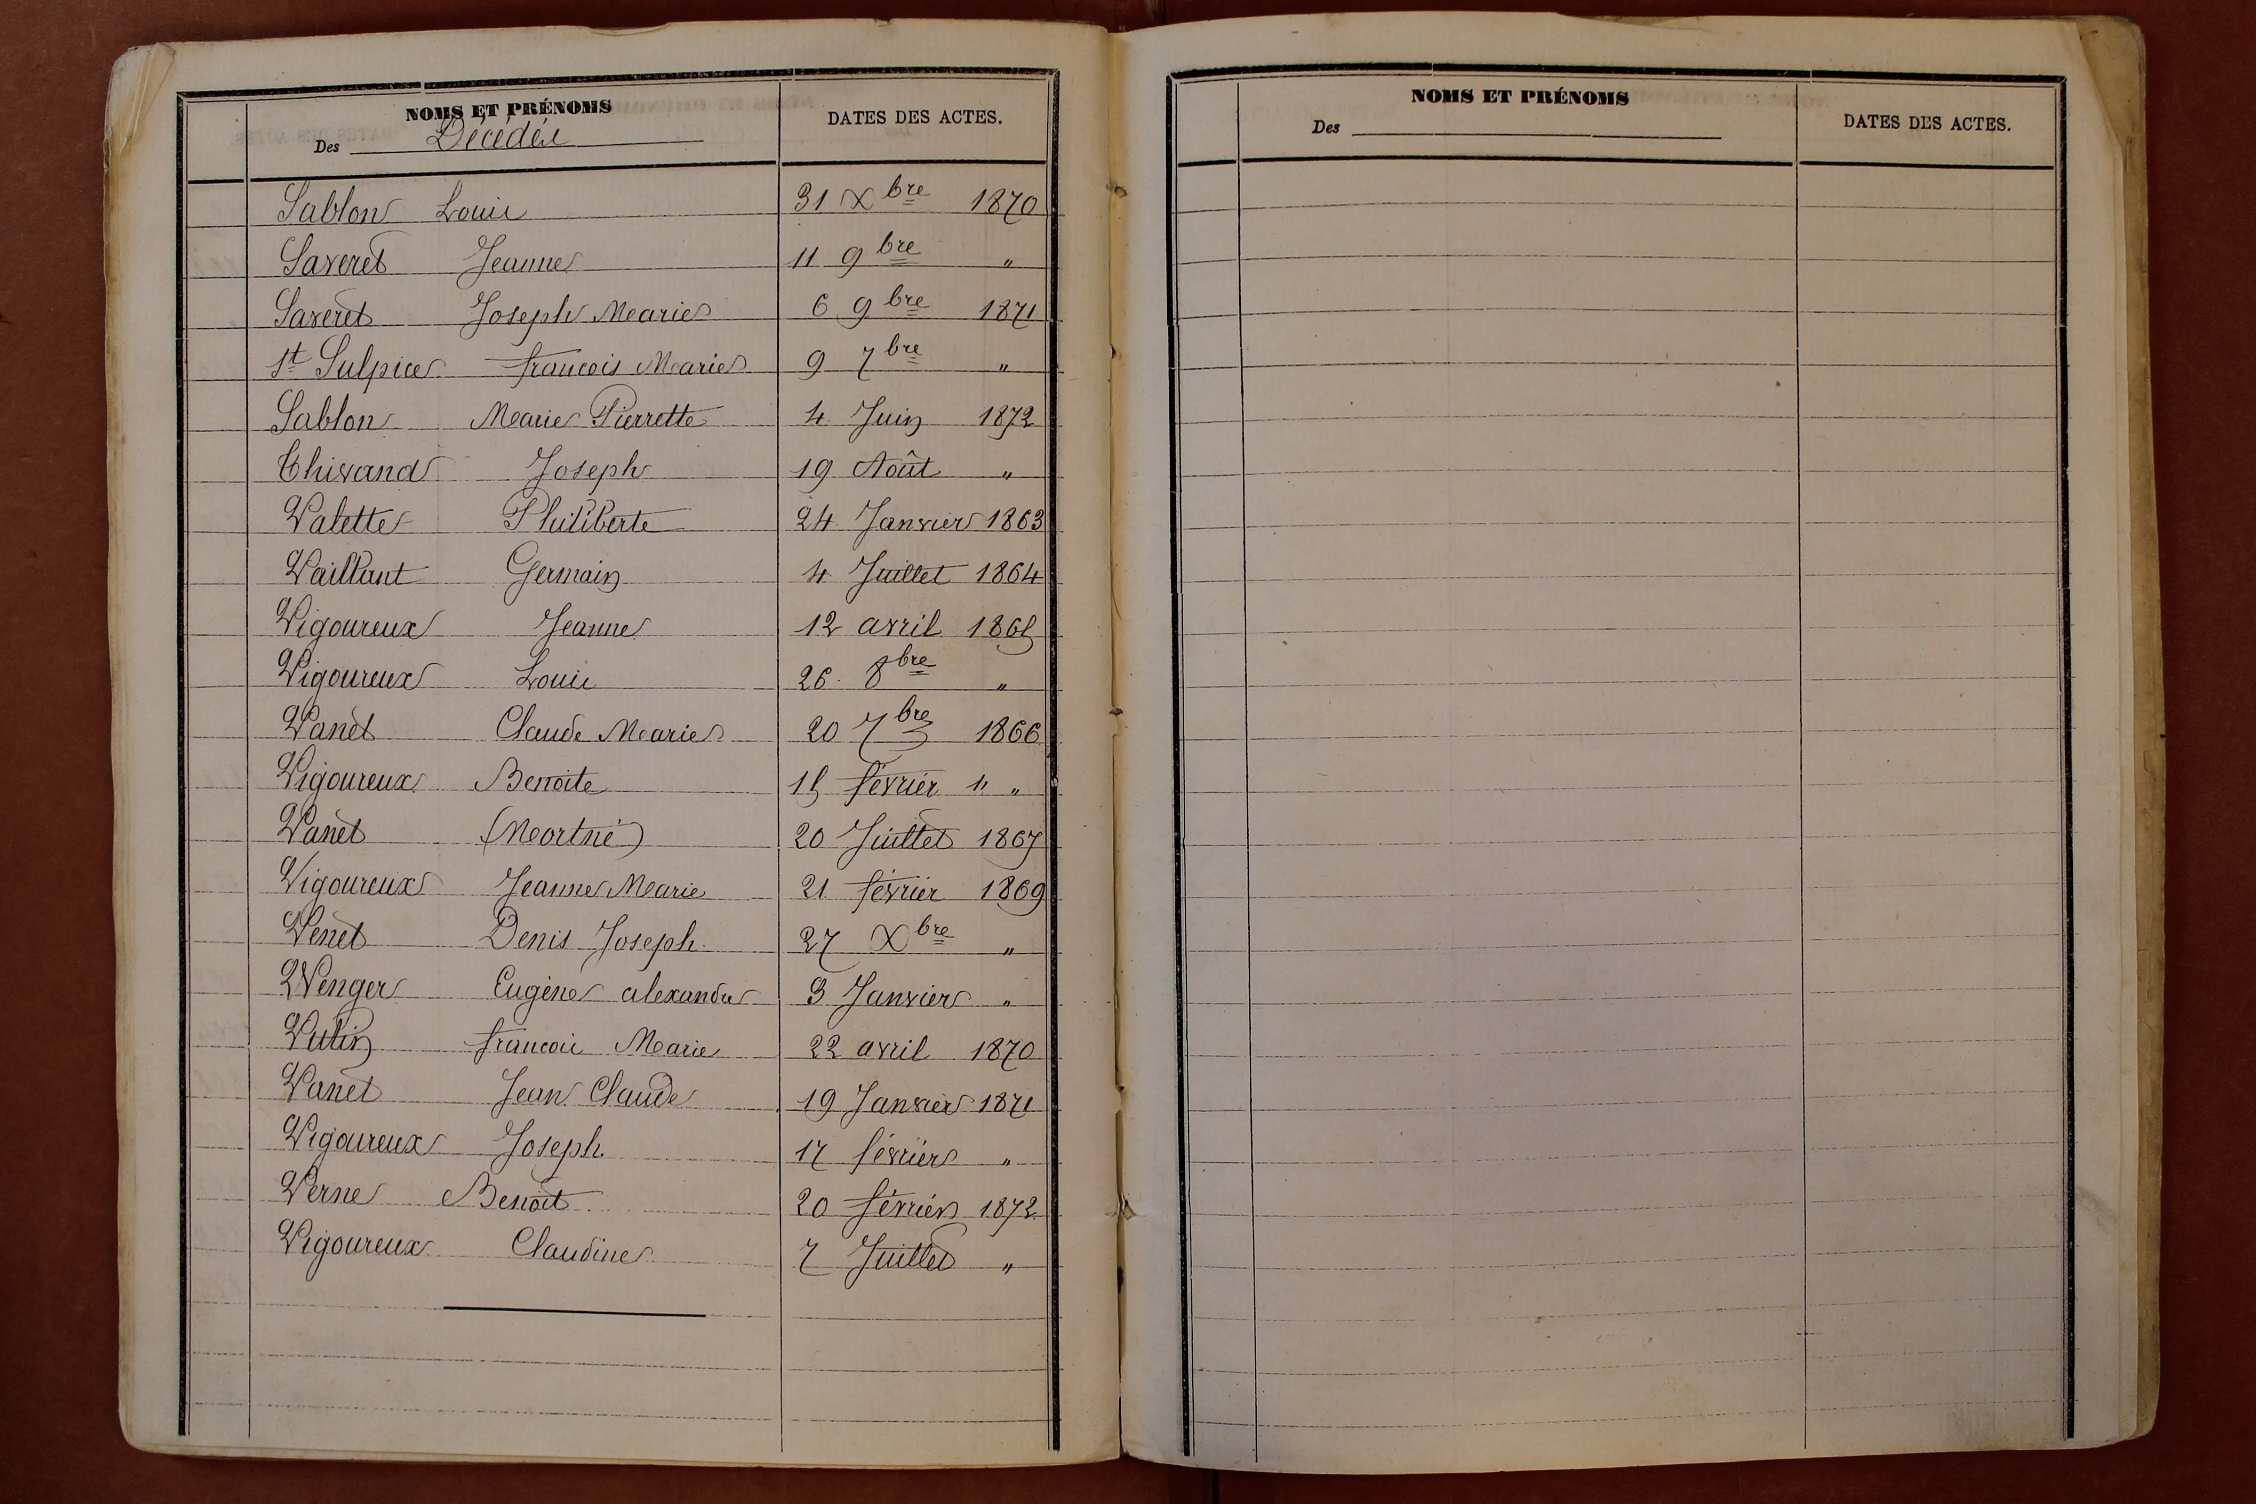 NOMS ET PRÉNOMS
Des Décédés
DATES DES ACTES.
Sablon Louis 31 Xbre 1870
Saveret Jeanne 11 9bre "
Saveret Joseph Marie 6 9bre 1871
St Sulpice francois Marie 9 7bre "
Sablon Marie Pierrette 4 Juin 1872
Thivand Joseph 19 Août "
Valette Philiberte 24 Janvier 1863
Vaillant Germain 4 Juillet 1864
Vigoureux Jeanne 12 avril 1865
Vigoureux Louis 26 8bre "
Vanet Claude Marie 20 7bre 1866
Vigoureux Benoite 15 février " "
Vanet (Mortné) 20 Juillet 1867
Vigoureux Jeanne Marie 21 février 1869
Venet Denis Joseph 27 Xbre "
Wenger Eugène alexandre 3 Janvier "
Vutin francois Marie 22 avril 1870
Vanet Jean Claude 19 Janvier 1871
Vigoureux Joseph 17 février "
Verne Benoit 20 février 1872
Vigoureux Claudine 7 Juillet "
NOMS ET PRÉNOMS
Des
DATES DES ACTES.